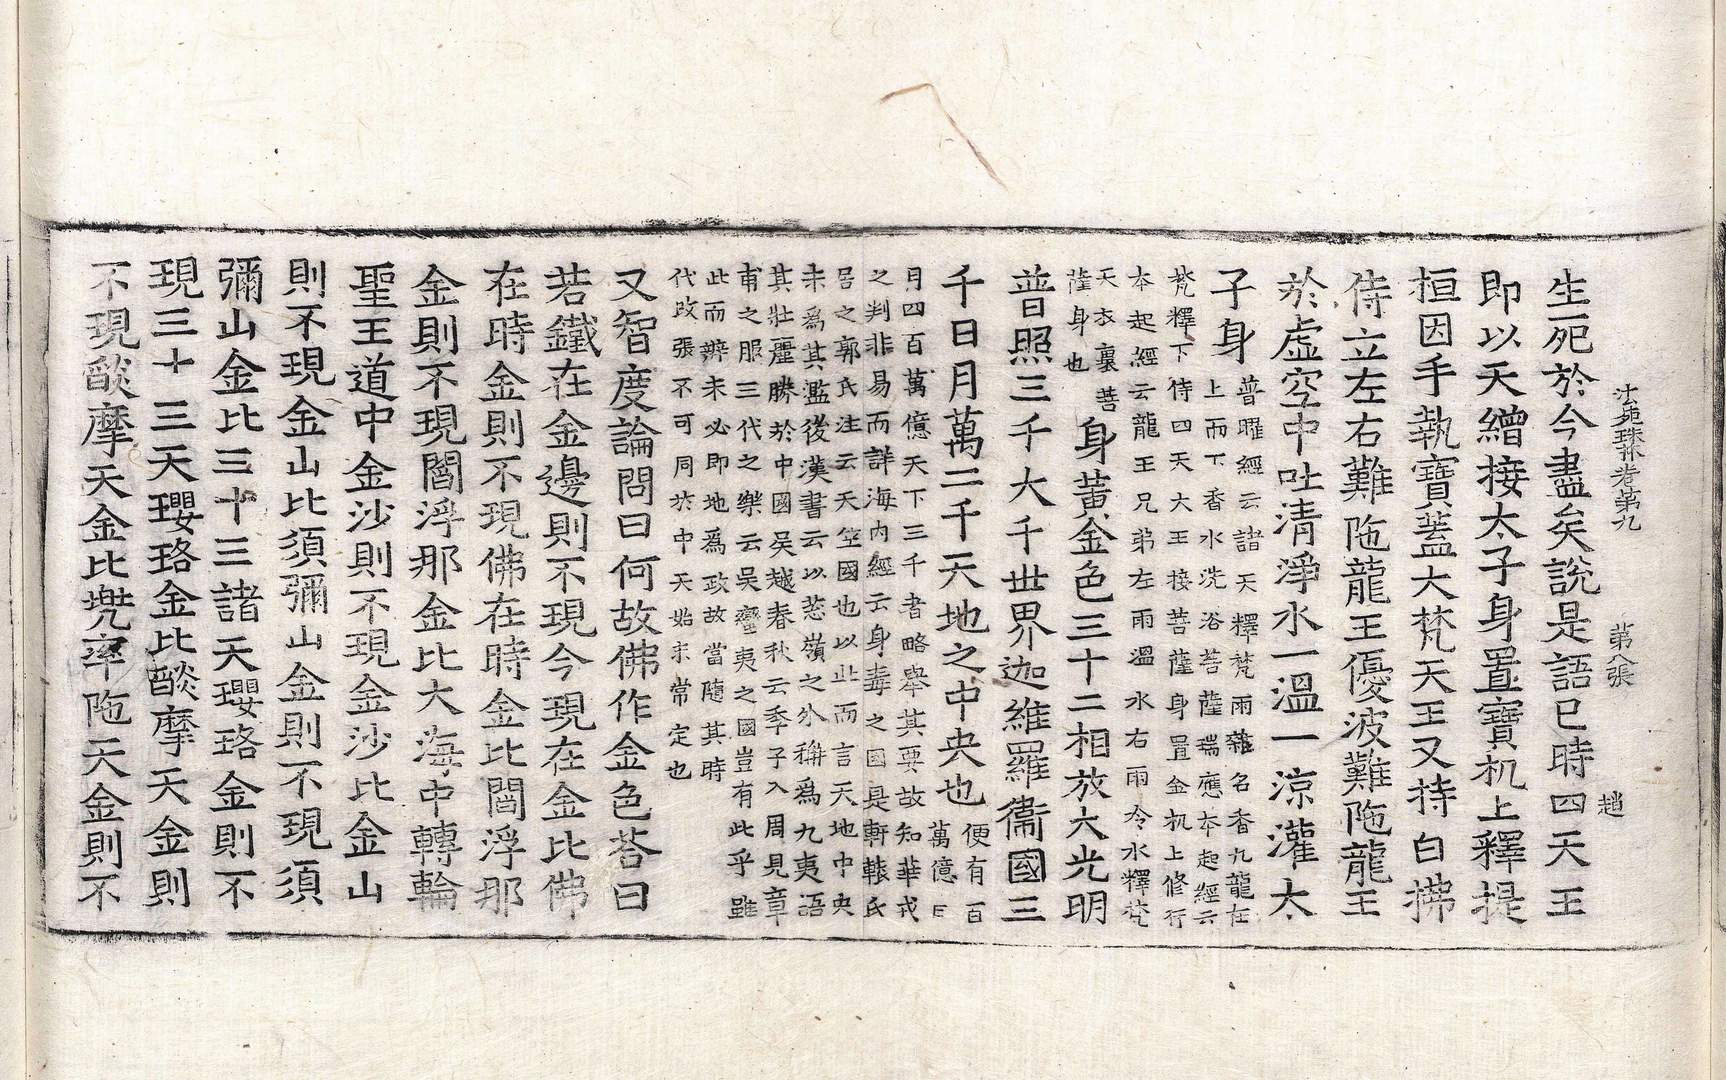 法苑珠林卷第九　第八張　趙
生死於今盡矣說是語已時四天王
即以天繒接太子身置寶机上釋提
桓因手執寶蓋大梵天王又持白拂
侍立左右難陁龍王優波難陁龍王
於虛空中吐清淨水一溫一涼灌太
子身
普曜經云諸天釋梵雨雜名香九龍在
上而下香水洗浴菩薩瑞應本起經云
梵釋下侍四天大王接菩薩身置金机上修行
本起經云龍王兄弟左雨溫水右雨冷水釋梵
天衣裹菩
薩身也
身黃金色三十二相放大光明
普照三千大千世界迦維羅衞國三
千日月萬二千天地之中央也
便有百
萬億日
月四百萬億天下三千者略舉其要故知華戎
之判非易而詳海内經云身毒之國是軒轅氏
居之郭氏注云天竺國也以此而言天地中央
未爲其濫後漢書云以葱嶺之外稱爲九夷語
其壯麗勝於中國吴越春秋云季子入周見章
甫之服三代之樂云吴蠻夷之國豈有此乎雖
此而辨未必即地爲政故當隨其時
代改張不可同於中天始末常定也
又智度論問曰何故佛作金色荅曰
若鐵在金邊則不現今現在金比佛
在時金則不現佛在時金比閻浮那
金則不現閻浮那金比大海中轉輪
聖王道中金沙則不現金沙比金山
則不現金山比須彌山金則不現須
彌山金比三十三諸天瓔珞金則不
現三十三天瓔珞金比燄摩天金則
不現燄摩天金比兠率陁天金則不